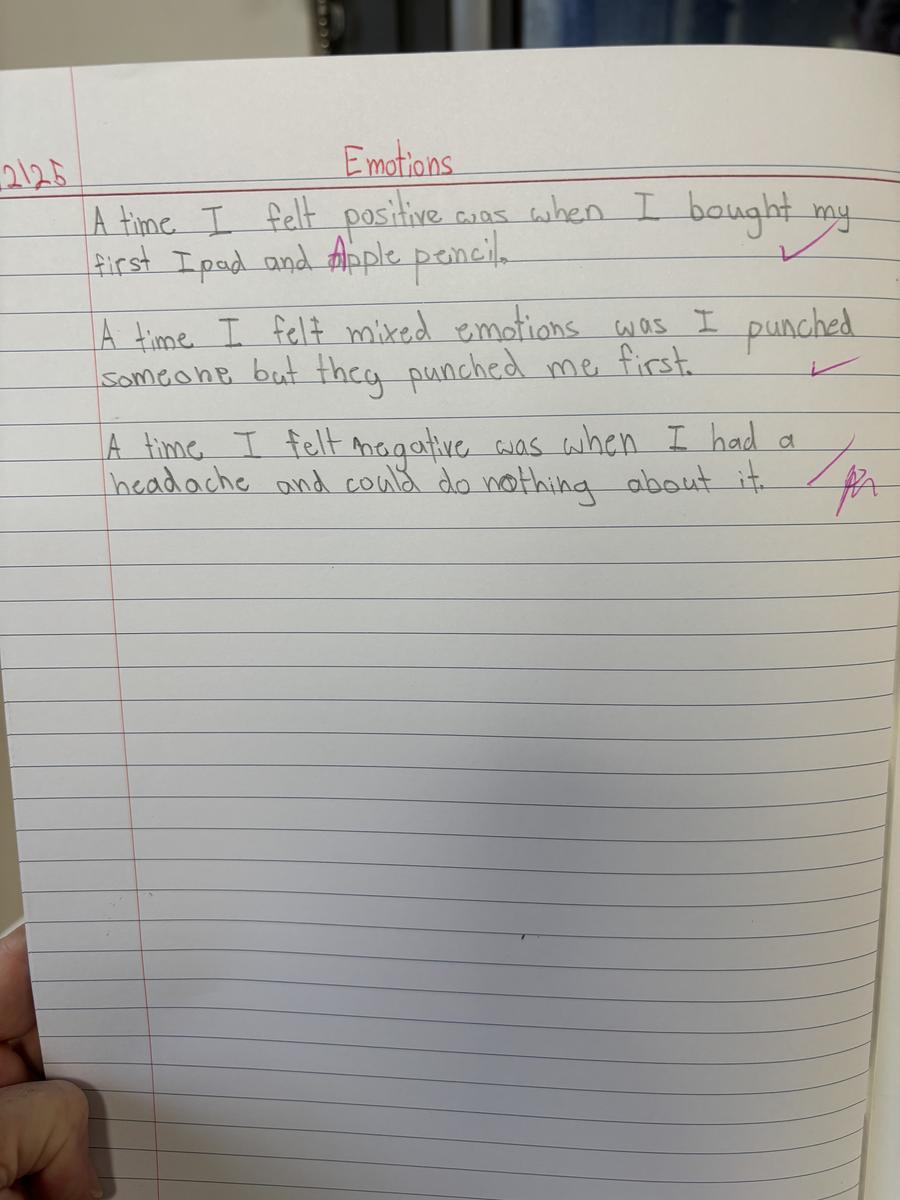 2\25
Emotions
A time I felt positive was when I bought my
first Ipad and Apple pencil.
A time I felt mixed emotions was I punched
someone but they punched me first.
A time I felt negative was when I had a
headache and could do nothing about it.